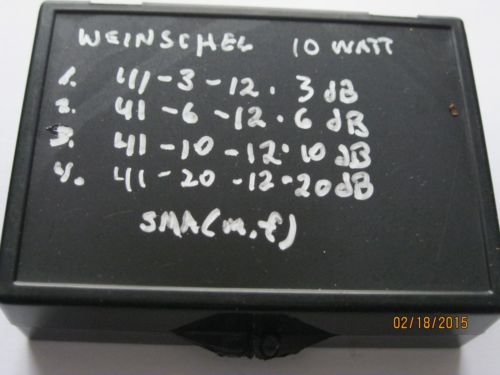 WEINSCHEL 10 WATT
1. 41-3-12. 3 dB
2. 41-6-12.6 dB
3. 41-10-12.10 dB
4. 41-20-12-20 dB
SMA(m,f)
02/18/2015